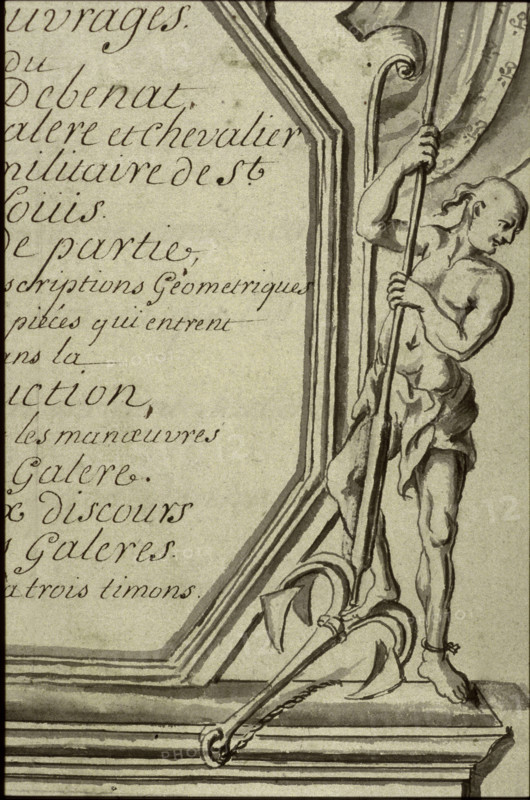 uvrages.
du
Debenat,
alere et chevalier
militaire de St
Louis.
de partie,
scriptions Géometriques
pieces qui entrent
ans la
uction,
les manœuvres
Galere.
x discours
s Galeres.
a trois timons.